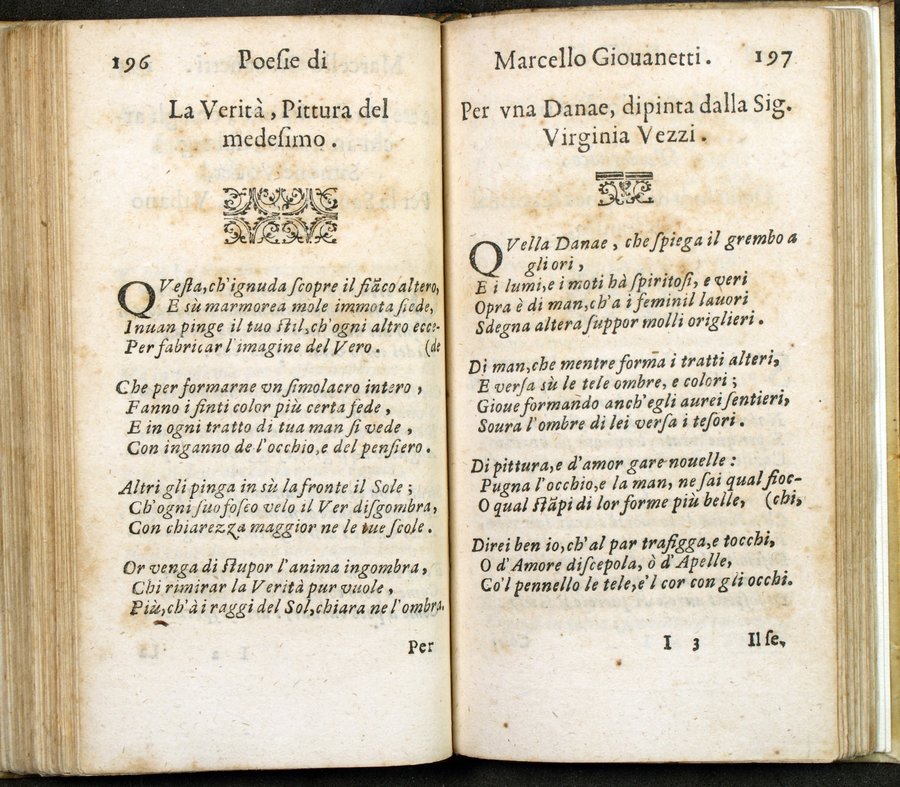 196 Poesie di
La Verità, Pittura del
medesimo.
QVesta, ch'ignuda scopre il fiãco altero,
E sù marmorea mole immota siede,
Inuan pinge il tuo stil, ch'ogni altro ecce-
Per fabricar l'imagine del Vero. (de
Che per formarne vn simolacro intero,
Fanno i finti color più certa fede,
E in ogni tratto di tua man si vede,
Con inganno de l'occhio, e del pensiero.
Altri gli pinga in sù la fronte il Sole;
Ch'ogni suo fosco velo il Ver disgombra,
Con chiarezza maggior ne le tue scole.
Or venga di stupor l'anima ingombra,
Chi rimirar la Verità pur vuole,
Più, ch'à i raggi del Sol, chiara ne l'ombra.
Per
Marcello Giouanetti. 197
Per vna Danae, dipinta dalla Sig.
Virginia Vezzi.
QVella Danae, che spiega il grembo a
gli ori,
E i lumi, e i moti hà spiritosi, e veri
Opra è di man, ch'a i feminil lauori
Sdegna altera suppor molli origlieri.
Di man, che mentre forma i tratti alteri,
E versa sù le tele ombre, e colori;
Gioue formando anch'egli aurei sentieri,
Soura l'ombre di lei versa i tesori.
Di pittura, e d'amor gare nouelle:
Pugna l'occhio, e la man, ne sai qual fioc-
O qual stãpi di lor forme più belle, (chi,
Direi ben io, ch'al par trafigga, e tocchi,
O d'Amore discepola, ò d'Apelle,
Co'l pennello le tele, e'l cor con gli occhi.
I 3 Il se,